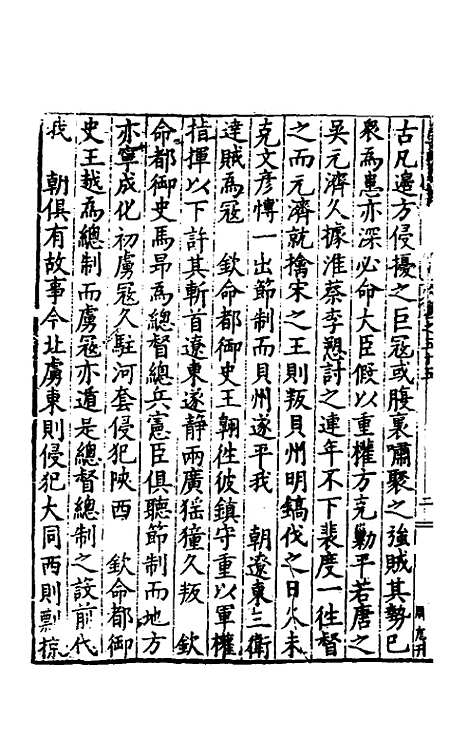 古凡邉方侵擾之巨冦或腹裏嘯聚之強賊其勢已
衆為患亦深必命大臣假以重權方克勦平若唐之
吳元濟久據淮蔡李愬討之連年不下裴度一徃督
之而元濟就擒宋之王則叛貝州明鎬伐之日久未
克文彦愽一出節制而貝州遂平我　朝遼東三衛
達賊為冦　欽命都御史王翱徃彼鎮守重以軍權
指揮以下許其斬首遼東遂静兩廣猺獞久叛　欽
命都御史馬昻為總督總兵憲臣俱聽節制而地方
亦寧成化初虜冦久駐河套侵犯陜西　欽命都御
史王越為總制而虜冦亦遁是總督總制之設前代
我　朝俱有故事今北虜東則侵犯大同西則剽掠
二